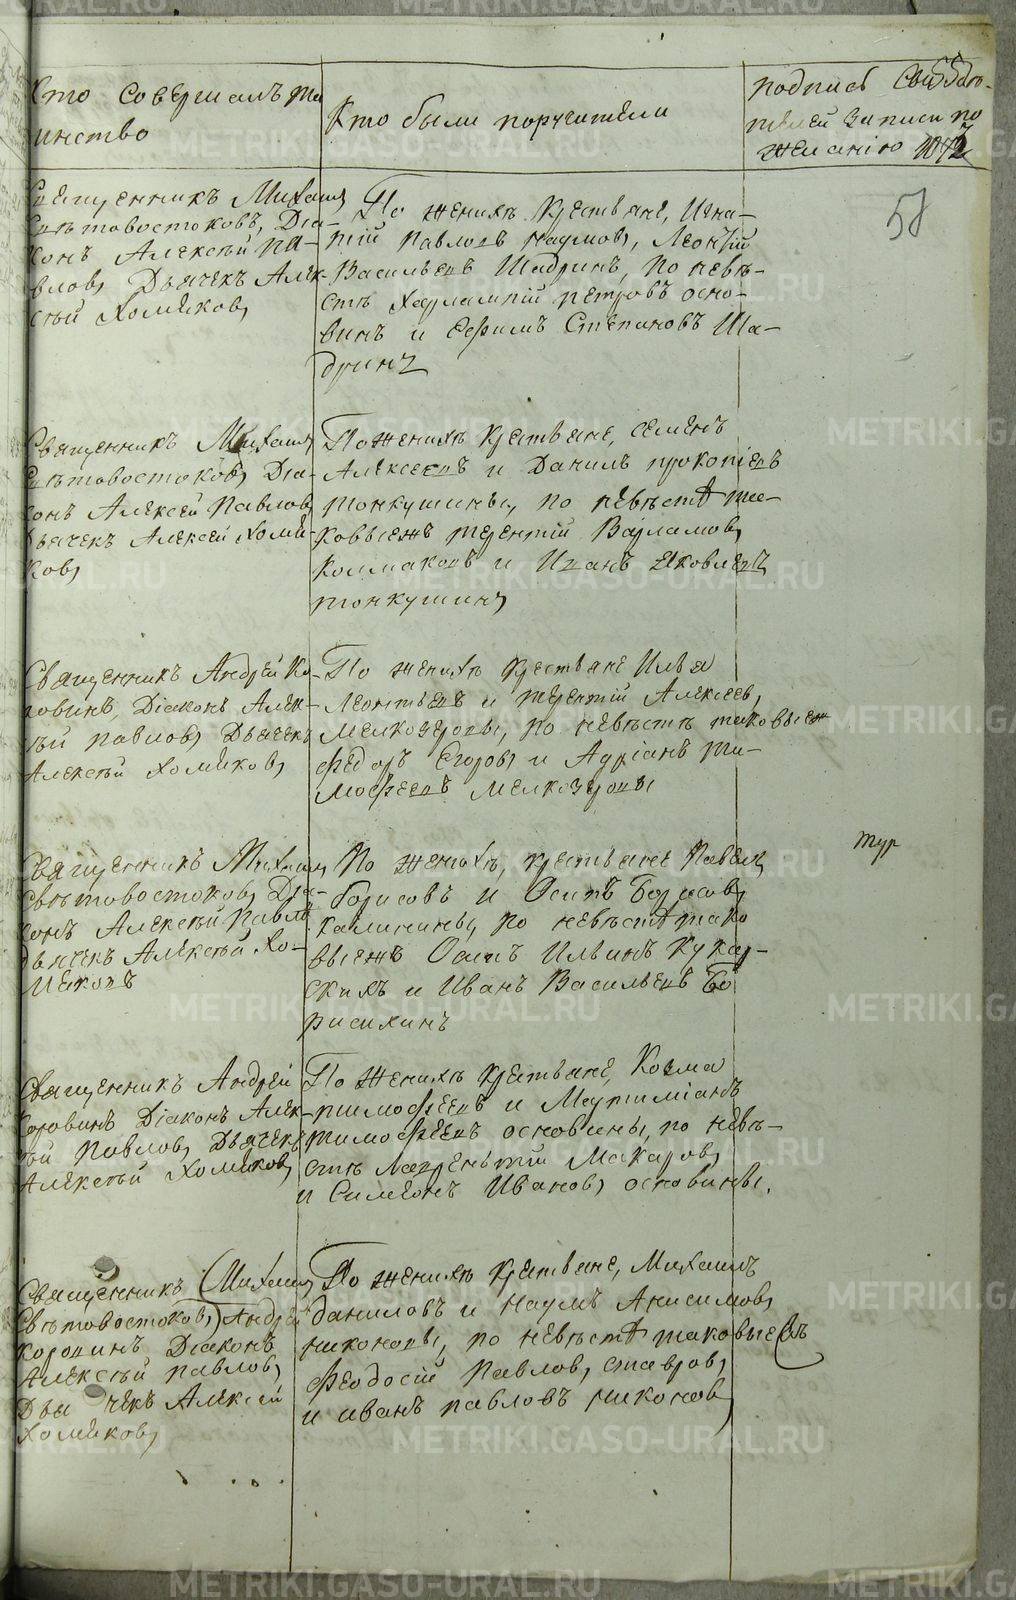 Кто совершалъ та
инство
Кто были поручители
подпись свидѣте-
телей записи по
желанію
58
Священникъ Михаил
Свѣтовостоковъ, Діа-
конъ Алексѣй Па-
вловъ Дьячекъ Алек-
сѣй Хомяковъ
По женихѣ крестьяне, Игна-
тій Павловъ Наумовъ, Леонтій
Васильевъ Шадринъ, по невѣ-
стѣ Харлампій Петровъ осно-
винъ и Ефимъ Степановъ Ша-
дринъ
Священникъ Михаил
Свѣтовостоковъ Діа-
конъ Алексей Павловъ
Дьячекъ Алексей Хомя-
ковъ
По женихѣ крестьяне, Семенъ
Алексеевъ и Данилъ прокопіевъ
тонкушины, по невѣстѣ та-
ковыежъ терентій Варламовъ
Колмаковъ и Иванъ Яковлевъ
тонкушинъ
Священникъ Андрей Ко-
ровинъ, Діаконъ Алек-
сѣй Павловъ Дьячекъ
Алексѣй Хомяковъ
По женихѣ крестьяне Илья
Леонтьевъ и терентій Алексеевъ
Мелкозеровы, по невѣстѣ таковыеж
Федоръ Егоровъ и Адріанъ ти-
мофеевъ Мелкозеровы
тур
Священникъ Михаил
Свѣтовостоковъ Діа-
конъ Алексѣй Павловъ
Дьячекъ Алексѣй Хо-
мяковъ
По женихѣ, крестьяне Павелъ
Борисовъ и Осипъ Борисовъ
Калинины, по невѣстѣ тако
выежъ Осипъ Ильинъ Кукар-
скихъ и Иванъ Васильевъ Бо
рисихинъ
Священникъ Андрей
Коровинъ Діаконъ Алек-
сѣй Павловъ Дьячекъ
Алексѣй Хомяковъ
По женихѣ крестьяне, Козма
тимофеевъ и
тимофеевъ основины, по невѣ-
стѣ Лаврентій Макаровъ
и Симеонъ Ивановъ основины.
Священникъ (Михаил
Свѣтовостоковъ) Андрей
Коровинъ Діаконъ
Алексѣй Павловъ
Дья чекъ Алексей
Хомяковъ
По женихѣ крестьяне, Михаилъ
Даниловъ и Наумъ Анисимовъ
никоновы, по невѣстѣ таковыежъ
Феодосій Павловъ, ставровъ
и иванъ павловъ никоновъ